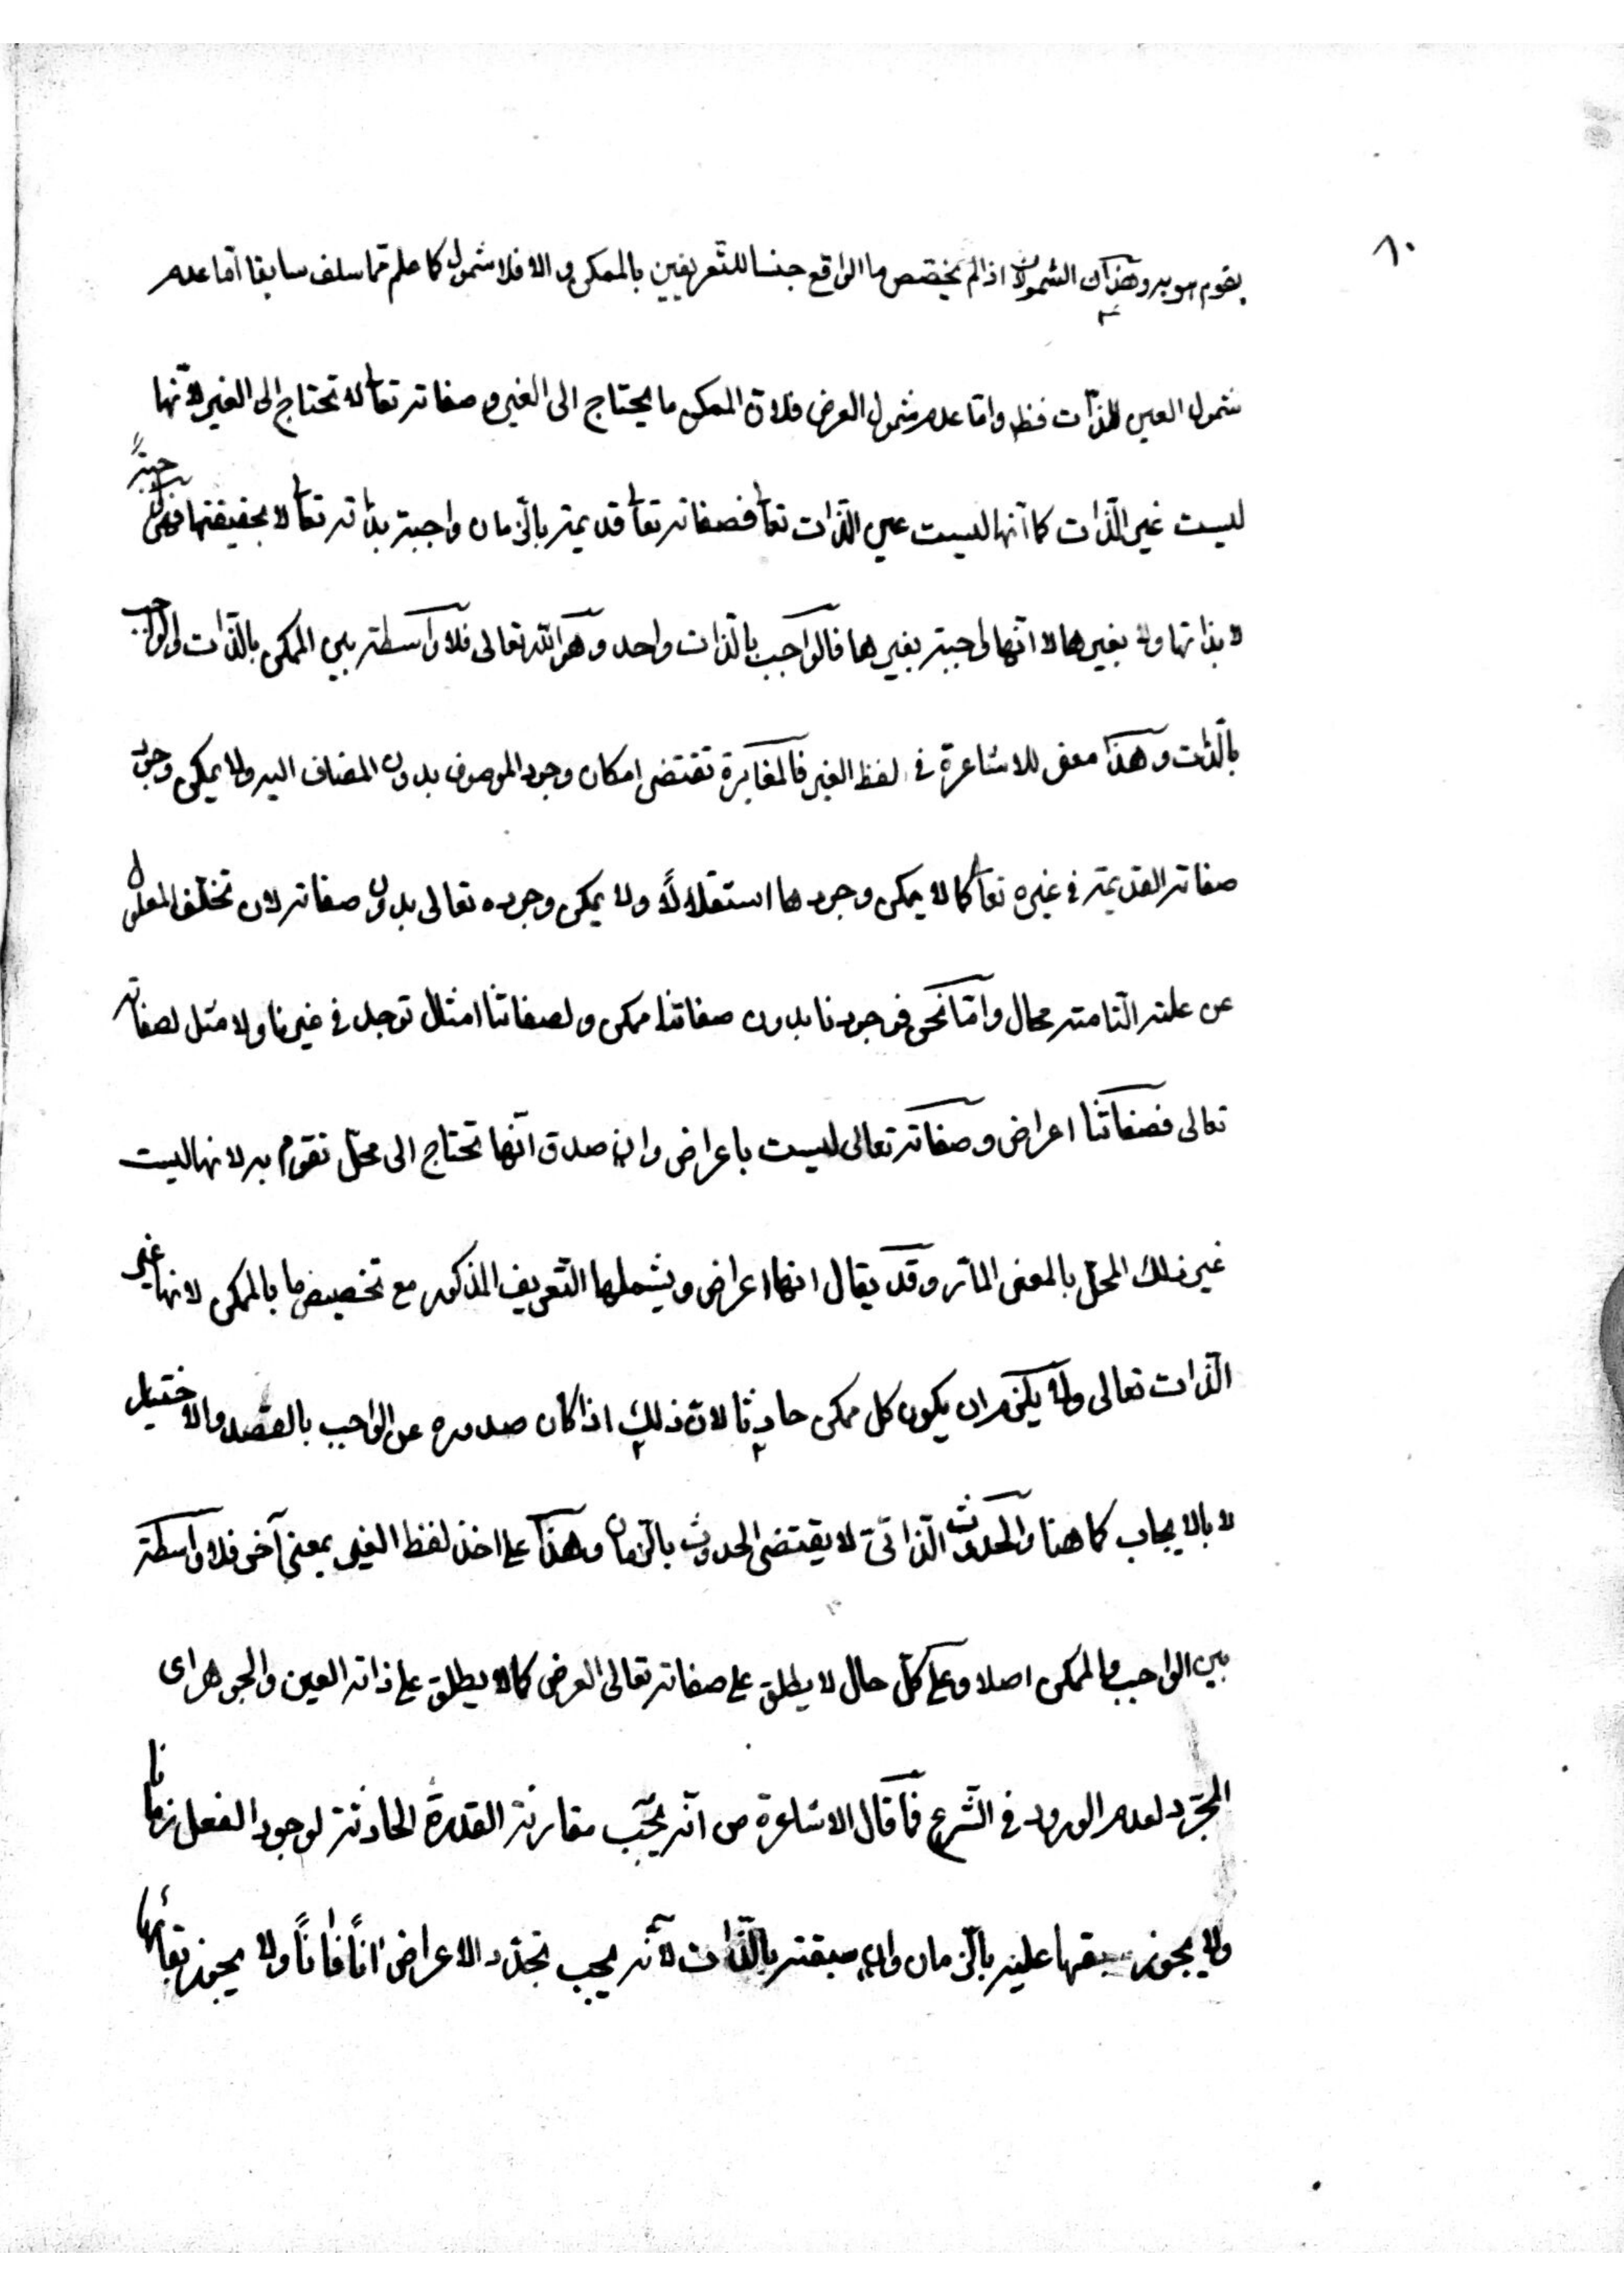 ١٠
يقوم هو به وهذان الشمولان اذا لم يخصّص ما الواقع جنسا للتعريفين بالممكن والا فلا شمول كما علم ممّا سلف سابقا امّا عدم
شمول العين للذّات فظ وامّا عدم شمول العرض فلانّ الممكن ما يحتاج الى الغير وصفاته تعا لا تحتاج الى الغير لانّها
ليست غير الذّات كما انّها ليست عين الذّات تعا فصفاته تعا قديمة بالزّمان واجبة بذاته تعا لا بحقيقتها فهى واجبةً
لا بذاتها ولا بغيرها لا انّها واجبة بغيرها فالواجب بالذّات واحد وهو اللّه تعالى فلا واسطة بين الممكن بالذّات والواجب
بالذّات وهذا معنى للاشاعرة فى لفظ الغير فالمغايرة تقتضى امكان وجود الموصوف بدون المضاف اليه ولا يمكن وجود
صفاته القديمة فى غيره تعا كما لا يمكن وجودها استقلالاً ولا يمكن وجوده تعالى بدون صفاته لان تخلّف المعلول
عن علته التّامة محال وامّا نحن فوجودنا بدون صفاتنا ممكن ولصفاتنا امثال توجد فى غيرنا ولا مثل لصفاته
تعالى فصفاتنا اعراض وصفاته تعالى ليست باعراض وان صدق انّها تحتاج الى محلّ تقوم به لانها ليست
غير ذلك المحلّ بالمعنى المارّ وقد يقال انها اعراض ويشملها التّعريف المذكور مع تخصيص ما بالممكن لانها غير
الذّات تعالى ولا يلزم ان يكون كل ممكن حادثا لانّ ذلك اذا كان صدوره عن الواجب بالقصد والاختيار
لا بالايجاب كما هنا والحدوث الذّاتىّ لا يقتضى الحدوث بالزّمان وهذا على اخذ لفظ الغير بمعنى آخر فلا واسطة
بين الواجب والممكن اصلا وعلى كلّ حال لا يطلق على صفاته تعالى العرض كما لا يطلق على ذاته العين والجوهر اى
المجرّد لعدم الورود فى الشّرع فما قال الاشاعرة من انّه يجب مقارنة القدرة الحادثة لوجود الفعل زمانا
ولا يجوز سبقها عليه بالزّمان وان سبقته بالذّات لانّه يجب تجدّد الاعراض آناً فآناً ولا يجوز بقائها